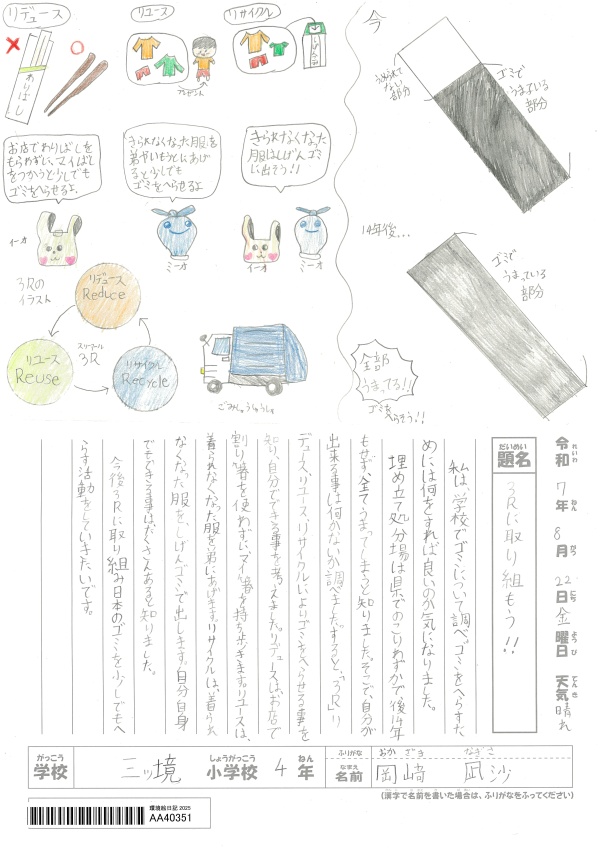 リデュース
わりばし
お店でわりばしを
もらわずに、マイばし
をつかうと少しでも
ゴミをへらせるよ。
イーオ
リユース
プレゼント
きられなくなった服を
弟やいもうとにあげ
ると少しでも
ゴミをへらせるよ
ミーオ
リサイクル
きられなくなった
服はしげんゴミ
に出そう!!
イーオ
ミーオ
3Rの
イラスト
リデュース
Reduce
リユース
Reuse
リサイクル
Recycle
スリーアール
3R
ごみしゅうしゅう車
今
うめられて
ない部分
ゴミで
うまっている
部分
14年後...
ゴミで
うまっている
部分
全部
うまってる!!
ゴミをへらそう!!
令和7年8月22日金曜日 天気晴れ
れいわ ねん がつ にち ようび てんき
だいめい
題名
3Rに取り組もう!!
私は、学校でゴミについて調べ、ゴミをへらすた
めには何をすれば良いのか気になりました。
埋め立て処分場は県でのこりわずかで、後14年
もせず、全てうまってしまうと知りました。そこで、自分が
出来る事は何かないか調べました。すると、「3R」リ
デュース、リユース、リサイクルによりゴミをへらせる事を
知り、自分でできる事を考えました。リデュースは、お店で
割り箸を使わずに、マイ箸を持ち歩きます。リユースは、
着られなくなった服を弟にあげます。リサイクルは、着られ
なくなった服を、しげんゴミで出します。自分自身
でもできる事はたくさんあると知りました。
今後3Rに取り組み日本のゴミを少しでもへ
らす活動をしていきたいです。
がっこう しょうがっこう ねん ふりがな おかざき なぎさ
学校 三ツ境 小学校 4年 なまえ 名前 岡﨑 凪沙
(漢字で名前を書いた場合は、ふりがなをふってください)
環境絵日記 2025
AA40351